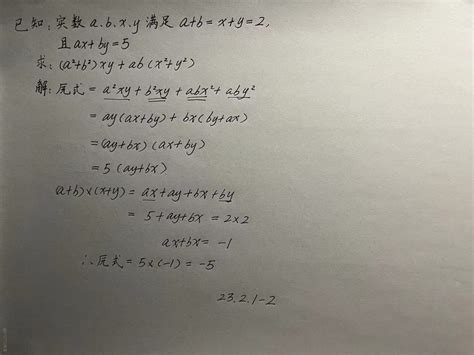 已知：实数 a.b.x.y 满足 a+b=x+y=2,
且 ax+by=5
求：(a²+b²)xy+ab(x²+y²)
解：原式=a²xy+b²xy+abx²+aby²
=ay(ax+by)+bx(by+ax)
=(ay+bx)(ax+by)
=5(ay+bx)
(a+b)×(x+y)=ax+ay+bx+by
=5+ay+bx=2×2
ax+bx=-1
∴原式=5×(-1)=-5
23.2.1-2